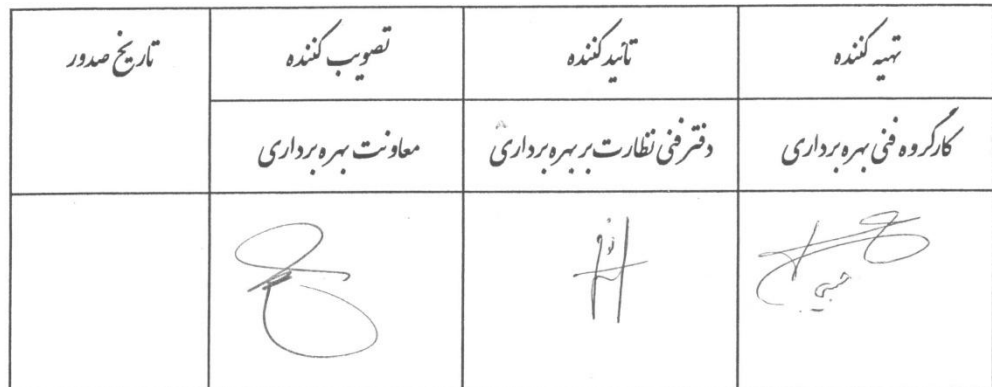 تهیه کننده
تائید کننده
تصویب کننده
تاریخ صدور
کارگروه فنی بهره برداری
دفتر فنی نظارت بر بهره برداری
معاونت بهره برداری